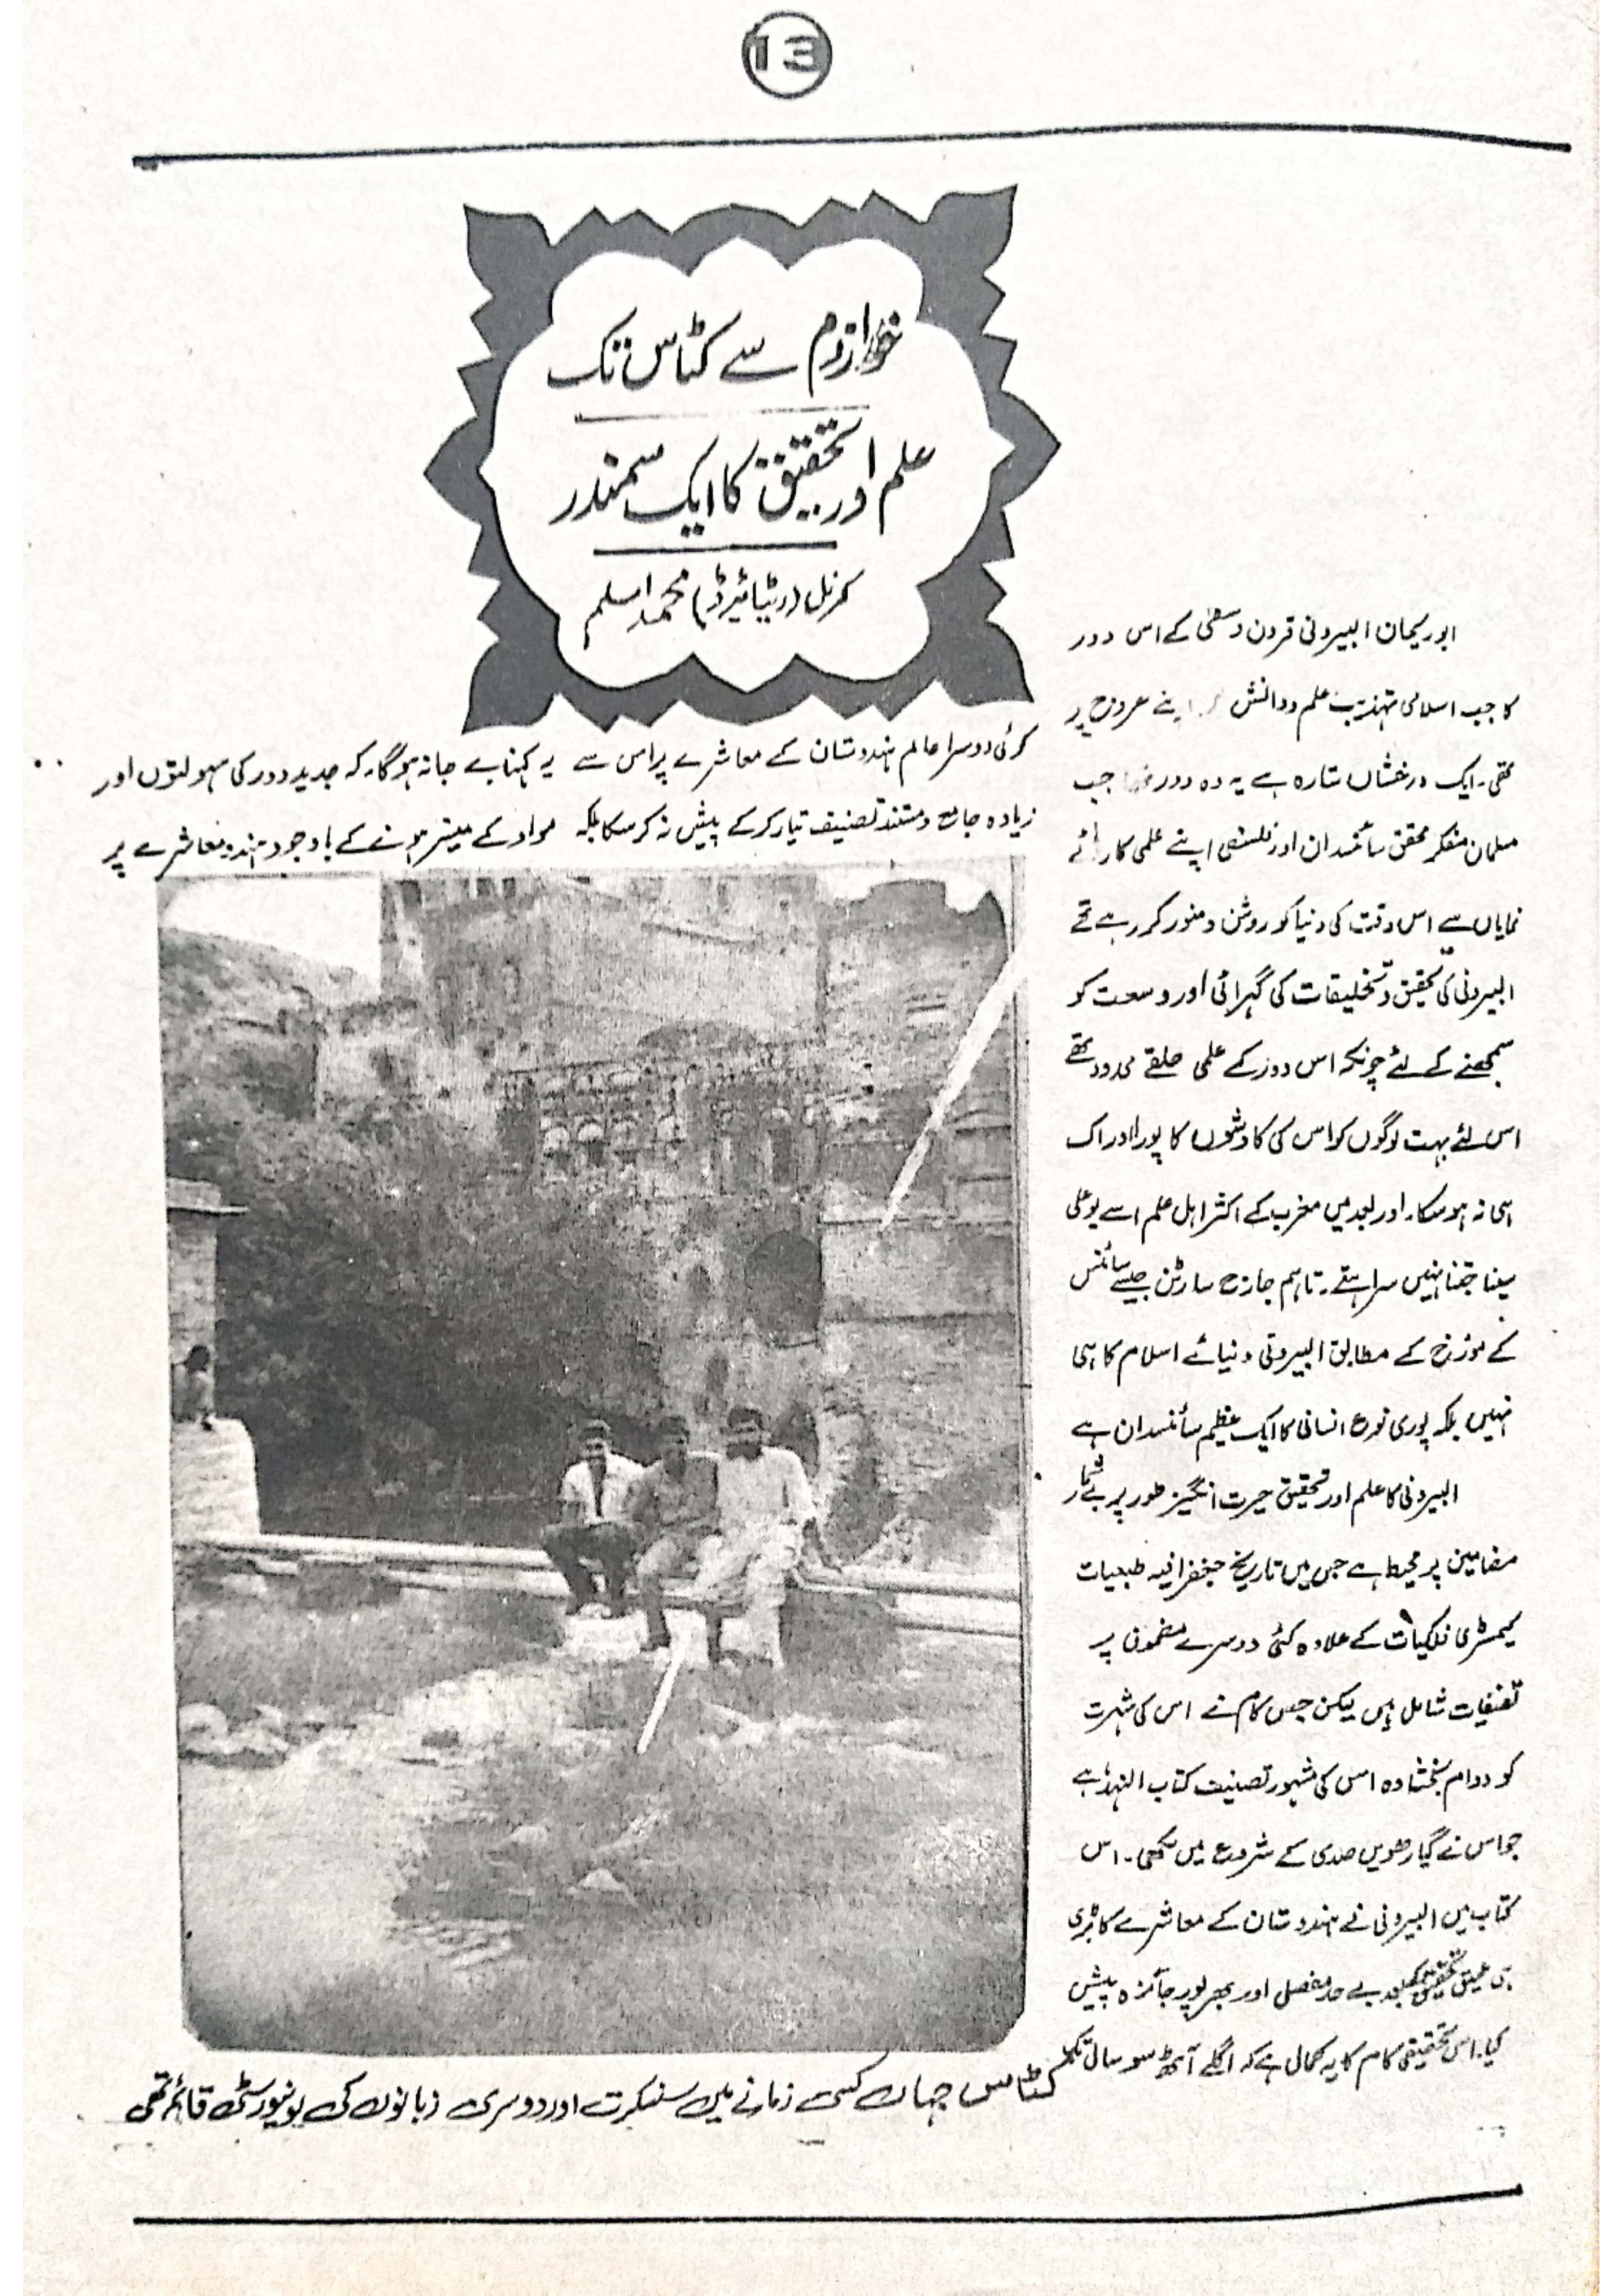 13
خوارزم سے کٹاس تک
علم اور تحقیق کا ایک سمندر
کرنل (ریٹائیرڈ) محمد اسلم
ابوریحان البیرونی قرون وسطیٰ کے اس دور
کا جب اسلامی تہذیب علم و دانش اپنے عروج پر
تھی۔ ایک درخشاں ستارہ ہے یہ وہ دور تھا جب
مسلمان مفکر محقق سائنسدان اور فلسفی اپنے علمی کارہائے
نمایاں سے اس وقت کی دنیا کو روشن و منور کر رہے تھے
البیرونی کی تحقیق و تخلیقات کی گہرائی اور وسعت کو
سمجھنے کے لئے چونکہ اس دور کے علمی حلقے محدود تھے
اس لئے بہت لوگوں کو اس کی کاوشوں کا پورا ادراک
ہی نہ ہو سکا۔ اور بعد میں مغرب کے اکثر اہل علم اسے بوعلی
سینا جتنا نہیں سراہتے۔ تاہم جارج سارٹن جیسے سائنس
کے مورخ کے مطابق البیرونی دنیائے اسلام کا ہی
نہیں بلکہ پوری نوع انسانی کا ایک عظیم سائنسدان ہے
البیرونی کا علم اور تحقیق حیرت انگیز طور پر بے شمار
مضامین پر محیط ہے جس میں تاریخ جغرافیہ طبعیات
کیمسٹری فلکیات کے علاوہ کئی دوسرے مضمون پر
تصنیفات شامل ہیں لیکن جس کام نے اس کی شہرت
کو دوام بخشا وہ اس کی مشہور تصنیف کتاب الہند ہے
جو اس نے گیارھویں صدی کے شروع میں لکھی۔ اس
کتاب میں البیرونی نے ہندوستان کے معاشرے کا بڑی
ہی عمیق تحقیق کے بعد بے حد مفصل اور بھرپور جائزہ پیش
کیا۔ اس تحقیقی کام کا یہ کمال ہے کہ اگلے آٹھ سو سال تک
کوئی دوسرا عالم ہندوستان کے معاشرے پر اس سے
زیادہ جامع و مستند تصنیف تیار کر کے پیش نہ کر سکا بلکہ
یہ کہنا بے جا نہ ہو گا۔ کہ جدید دور کی سہولتوں اور
مواد کے میسر ہونے کے باوجود ہندو معاشرے پر
کٹاس جہاں کسی زمانے میں سنسکرت اور دوسری زبانوں کی یونیورسٹی قائم تھی